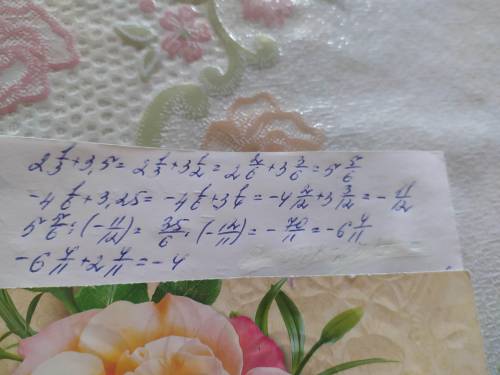 2 1/3 + 3,5 = 2 1/3 + 3 1/2 = 2 2/6 + 3 3/6 = 5 5/6
-4 1/6 + 3,25 = -4 1/6 + 3 1/4 = -4 2/12 + 3 3/12 = - 11/12
5 5/6 : (- 11/12) = 35/6 · (- 12/11) = - 70/11 = -6 4/11
-6 4/11 + 2 4/11 = -4